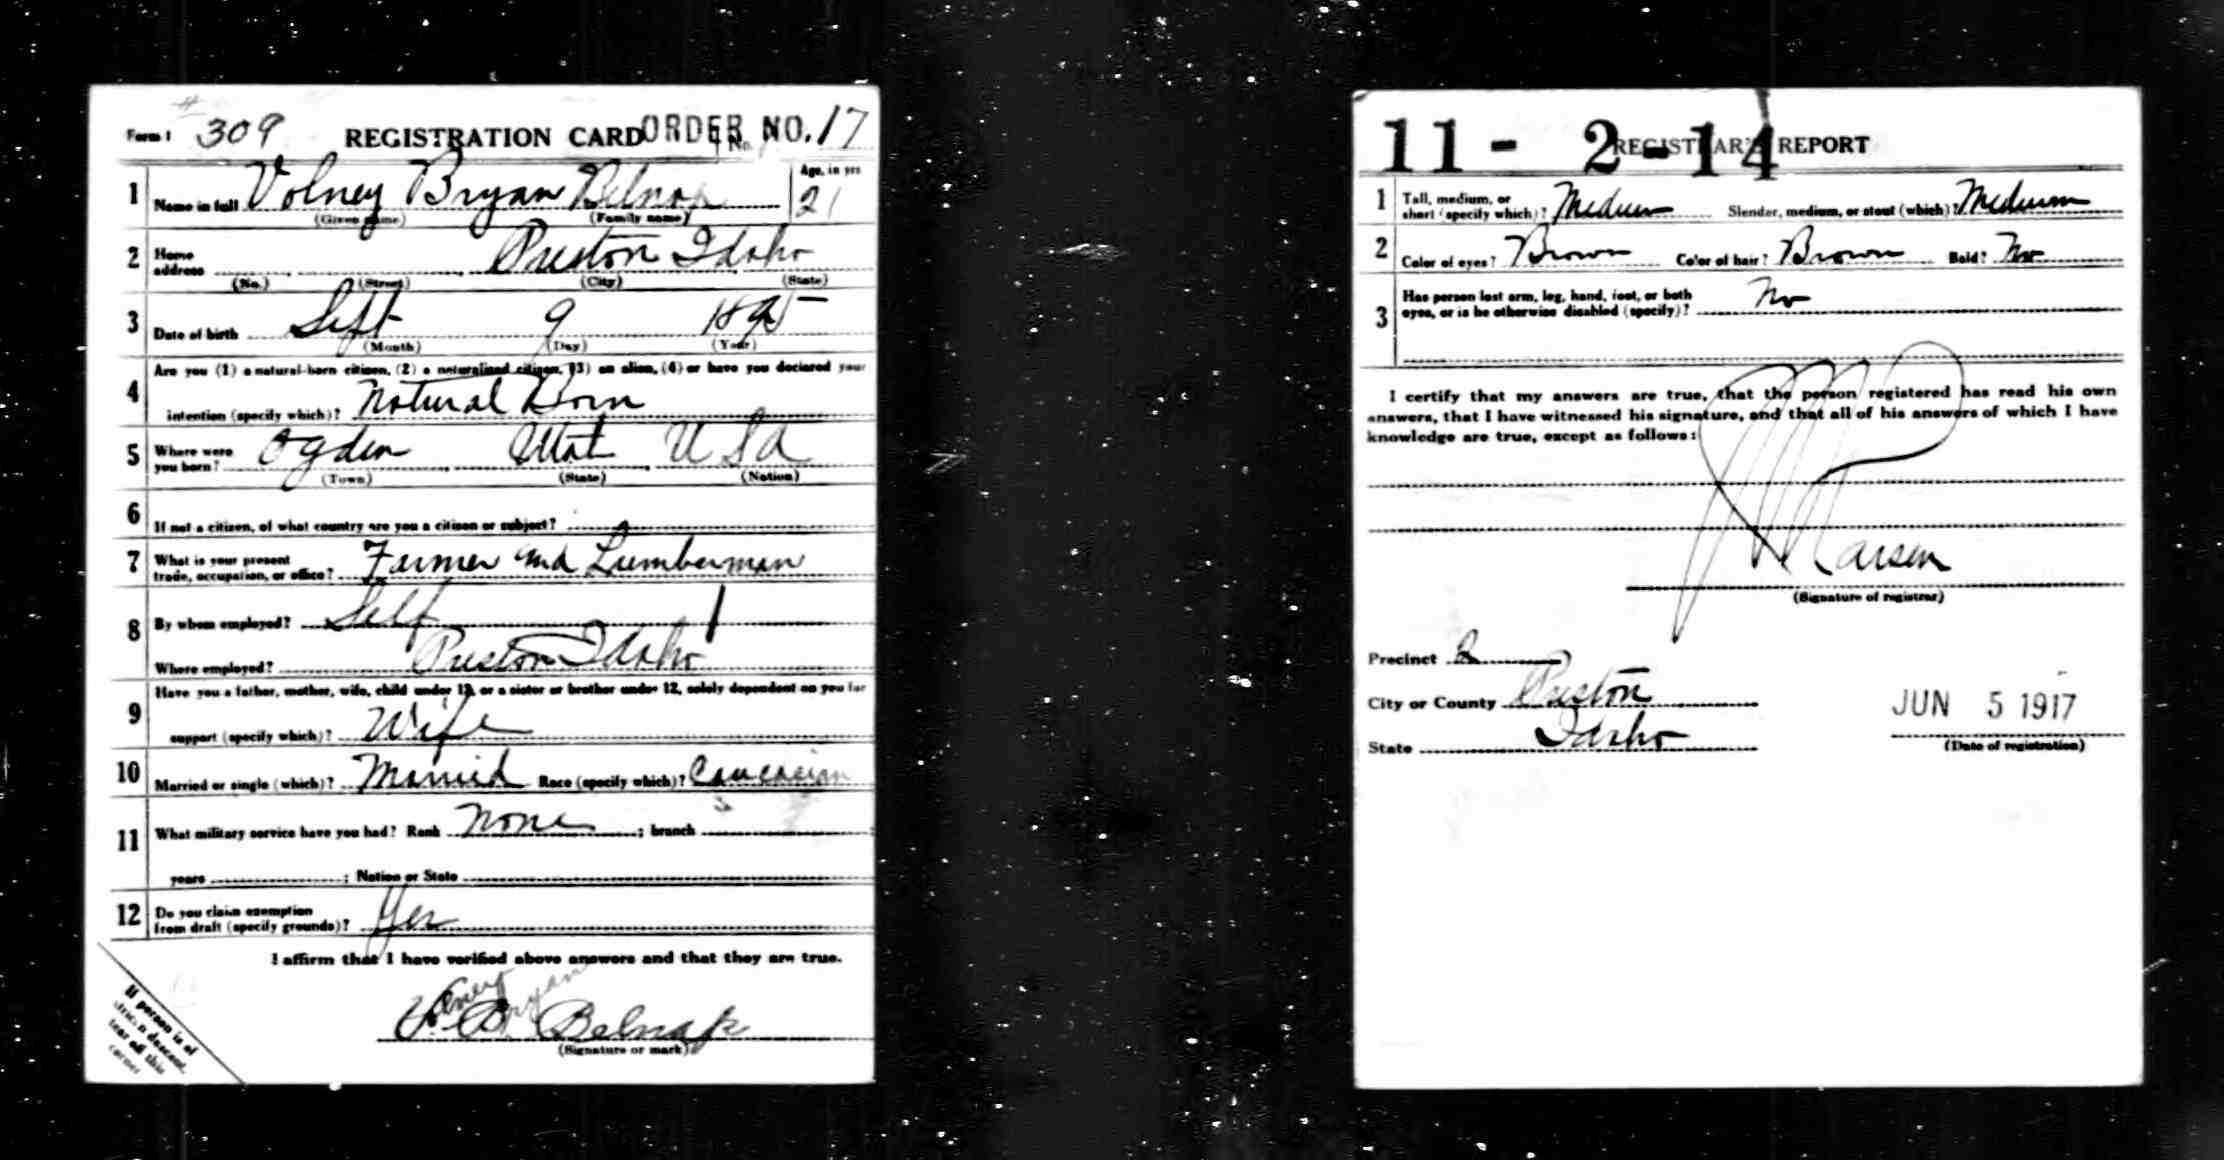 Form 1 309 REGISTRATION CARD ORDER NO. 17
No.
1 Name in full Volney Bryan Belnap Age, in yrs 21
(Given name) (Family name)
2 Home address Preston Idaho
(No.) (Street) (City) (State)
3 Date of birth Sept 9 1895
(Month) (Day) (Year)
4 Are you (1) a natural-born citizen, (2) a naturalized citizen, (3) an alien, (4) or have you declared your
intention (specify which)? Natural Born
5 Where were you born? Ogden Utah USA
(Town) (State) (Nation)
6 If not a citizen, of what country are you a citizen or subject?
7 What is your present
trade, occupation, or office? Farmer and Lumberman
8 By whom employed? Self
Where employed? Preston Idaho
9 Have you a father, mother, wife, child under 12, or a sister or brother under 12, solely dependent on you for
support (specify which)? Wife
10 Married or single (which)? Married Race (specify which)? Caucasian
11 What military service have you had? Rank None ; branch ;
years ; Nation or State
12 Do you claim exemption
from draft (specify grounds)? Yes
I affirm that I have verified above answers and that they are true.
Volney Bryan
V. B. Belnap
(Signature or mark)
If person is of
African descent,
tear off this
corner
11 - 2 - 14 REGISTRAR'S REPORT
1 Tall, medium, or
short (specify which)? Medium Slender, medium, or stout (which)? Medium
2 Color of eyes? Brown Color of hair? Brown Bald? No
3 Has person lost arm, leg, hand, foot, or both
eyes, or is he otherwise disabled (specify)? No
I certify that my answers are true, that the person registered has read his own
answers, that I have witnessed his signature, and that all of his answers of which I have
knowledge are true, except as follows:
Larsen
(Signature of registrar)
Precinct 2
City or County Preston
State Idaho
JUN 5 1917
(Date of registration)